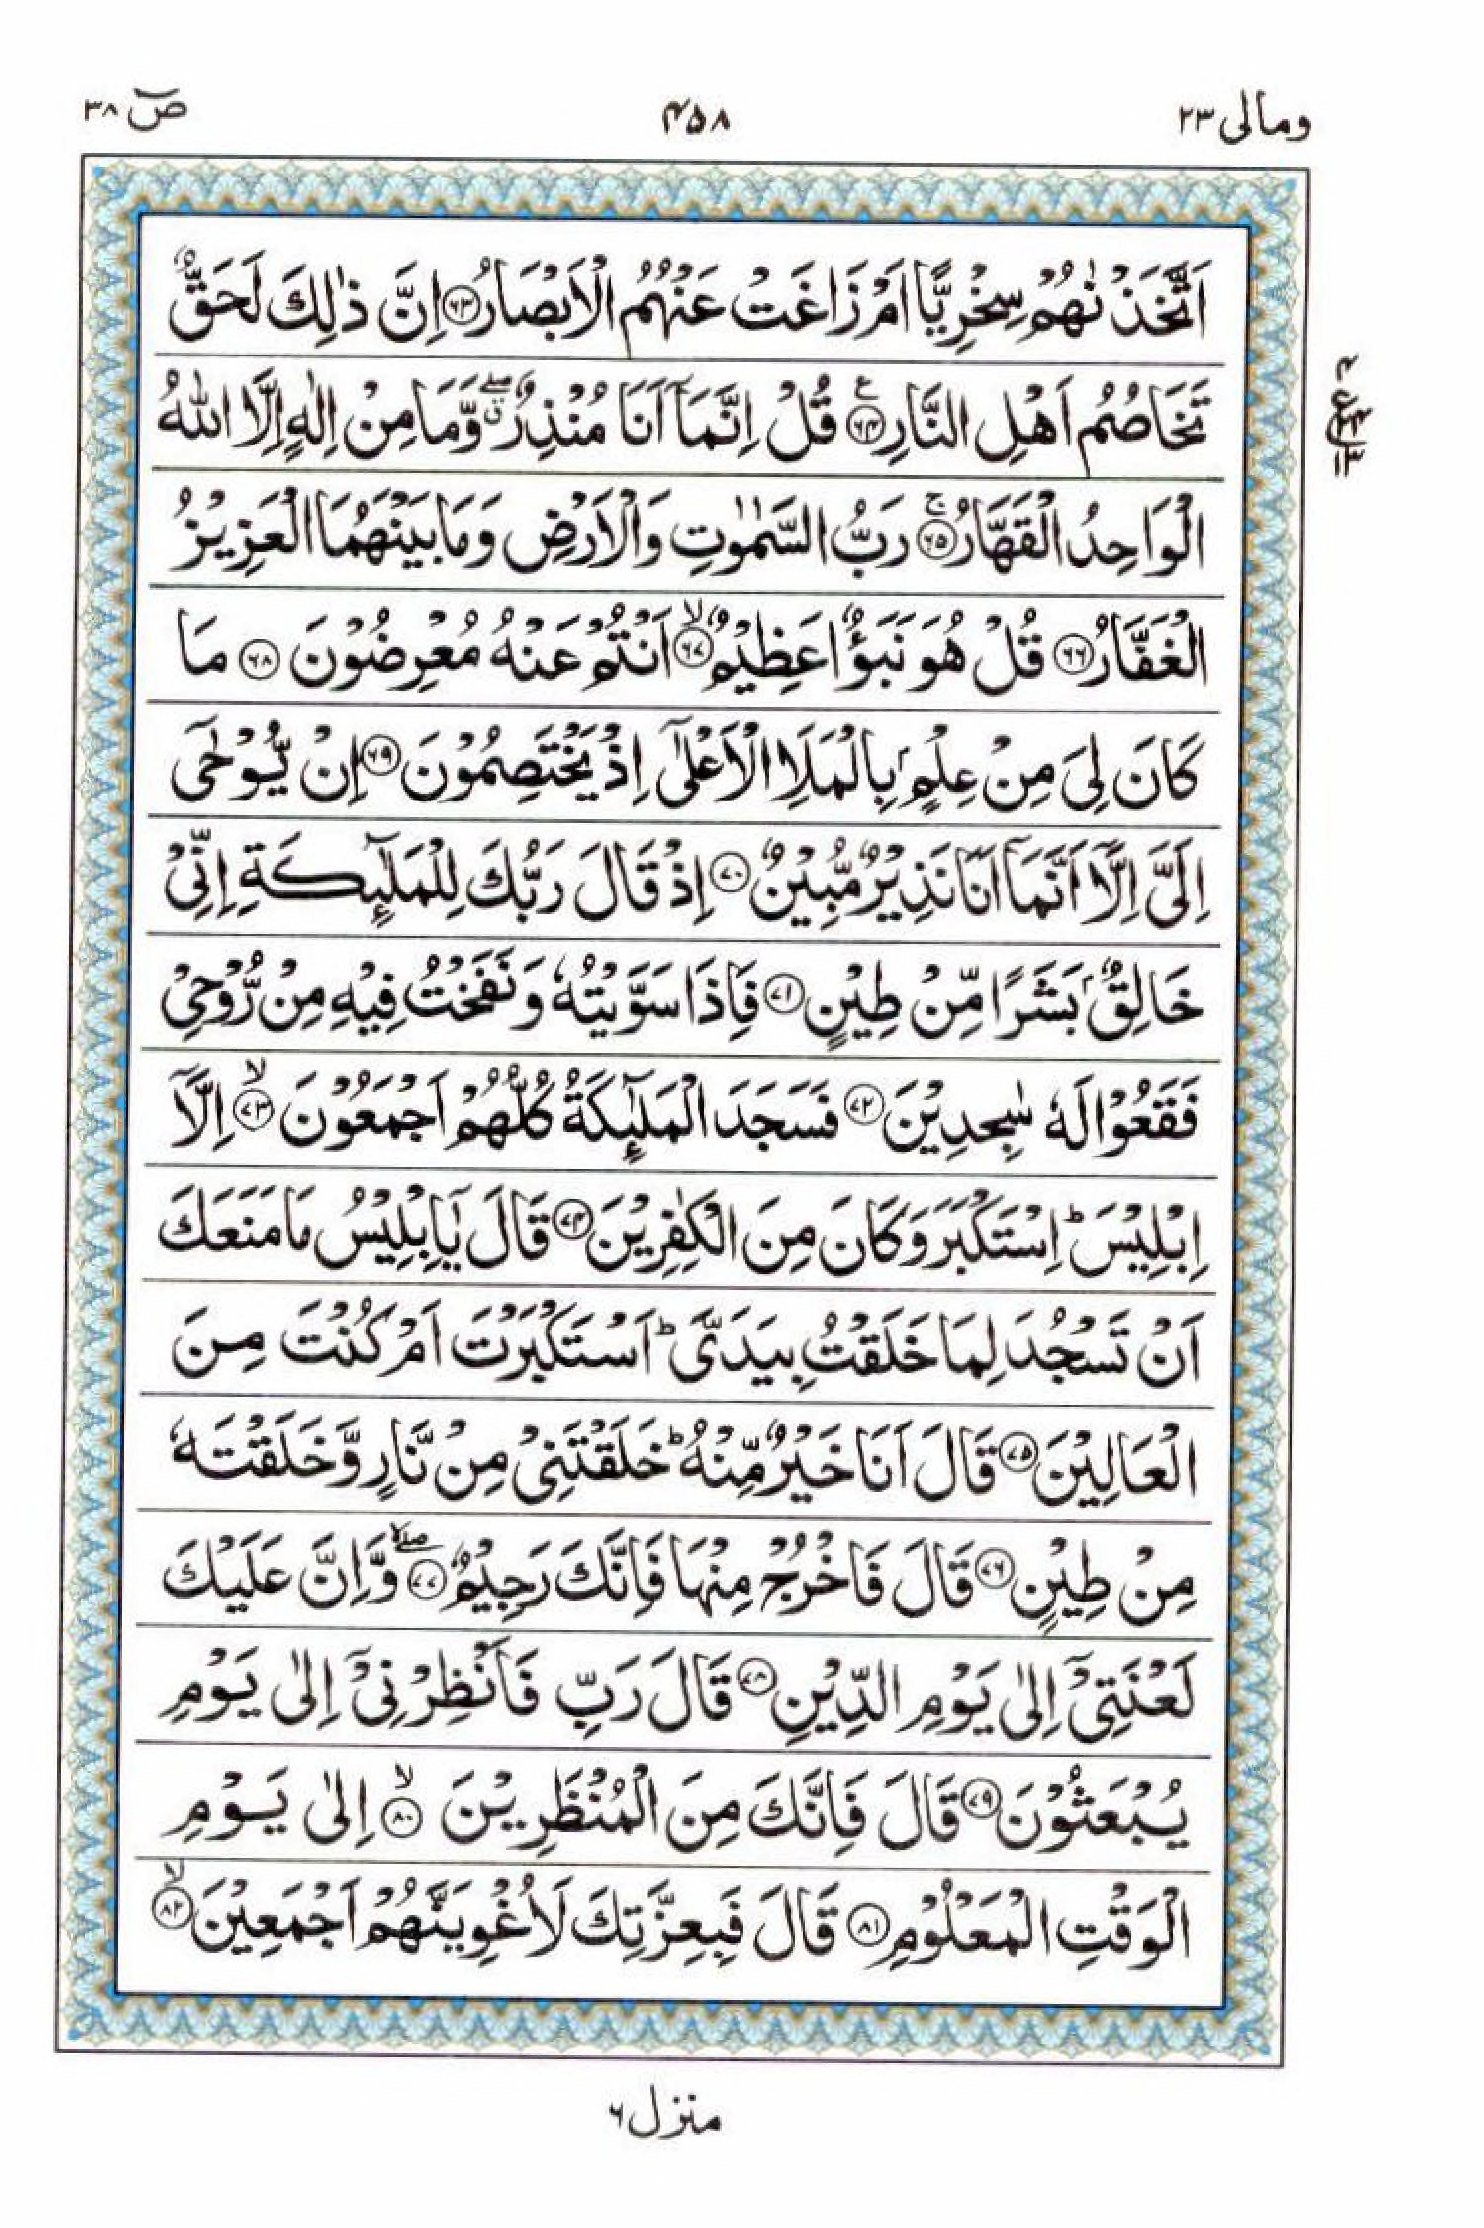 ومالی ٢٣
۴۵۸
صٓ ٣٨
اَتَّخَذْنٰهُمْ سِخْرِيًّا اَمْ زَاغَتْ عَنْهُمُ الْاَبْصَارُ ﴿۶۳﴾ اِنَّ ذٰلِكَ لَحَقٌّ
تَخَاصُمُ اَهْلِ النَّارِ ﴿۶۴﴾ۚ قُلْ اِنَّمَاۤ اَنَا مُنْذِرٌ ۖۗ وَّمَا مِنْ اِلٰهٍ اِلَّا اللّٰهُ
الْوَاحِدُ الْقَهَّارُ ﴿۶۵﴾ۚ رَبُّ السَّمٰوٰتِ وَالْاَرْضِ وَمَا بَيْنَهُمَا الْعَزِيْزُ
الْغَفَّارُ ﴿۶۶﴾ قُلْ هُوَ نَبَؤٌا عَظِيْمٌ ﴿۶۷﴾ۙ اَنْتُمْ عَنْهُ مُعْرِضُوْنَ ﴿۶۸﴾ مَا
كَانَ لِيَ مِنْ عِلْمٍۭ بِالْمَلَاِ الْاَعْلٰۤى اِذْ يَخْتَصِمُوْنَ ﴿۶۹﴾ اِنْ يُّوْحٰۤى
اِلَيَّ اِلَّاۤ اَنَّمَاۤ اَنَا نَذِيْرٌ مُّبِيْنٌ ﴿۷۰﴾ اِذْ قَالَ رَبُّكَ لِلْمَلٰٓئِكَةِ اِنِّيْ
خَالِقٌۢ بَشَرًا مِّنْ طِيْنٍ ﴿۷۱﴾ فَاِذَا سَوَّيْتُهٗ وَنَفَخْتُ فِيْهِ مِنْ رُّوْحِيْ
فَقَعُوْا لَهٗ سٰجِدِيْنَ ﴿۷۲﴾ فَسَجَدَ الْمَلٰٓئِكَةُ كُلُّهُمْ اَجْمَعُوْنَ ﴿۷۳﴾ۙ اِلَّاۤ
اِبْلِيْسَ ؕ اِسْتَكْبَرَ وَكَانَ مِنَ الْكٰفِرِيْنَ ﴿۷۴﴾ قَالَ يٰۤاِبْلِيْسُ مَا مَنَعَكَ
اَنْ تَسْجُدَ لِمَا خَلَقْتُ بِيَدَيَّ ؕ اَسْتَكْبَرْتَ اَمْ كُنْتَ مِنَ
الْعَالِيْنَ ﴿۷۵﴾ قَالَ اَنَا خَيْرٌ مِّنْهُ ؕ خَلَقْتَنِيْ مِنْ نَّارٍ وَّخَلَقْتَهٗ
مِنْ طِيْنٍ ﴿۷۶﴾ قَالَ فَاخْرُجْ مِنْهَا فَاِنَّكَ رَجِيْمٌ ﴿۷۷﴾ۖۙ وَّاِنَّ عَلَيْكَ
لَعْنَتِيْۤ اِلٰى يَوْمِ الدِّيْنِ ﴿۷۸﴾ قَالَ رَبِّ فَاَنْظِرْنِيْۤ اِلٰى يَوْمِ
يُبْعَثُوْنَ ﴿۷۹﴾ قَالَ فَاِنَّكَ مِنَ الْمُنْظَرِيْنَ ﴿۸۰﴾ۙ اِلٰى يَوْمِ
الْوَقْتِ الْمَعْلُوْمِ ﴿۸۱﴾ قَالَ فَبِعِزَّتِكَ لَاُغْوِيَنَّهُمْ اَجْمَعِيْنَ ﴿۸۲﴾ۙ
منزل ٦